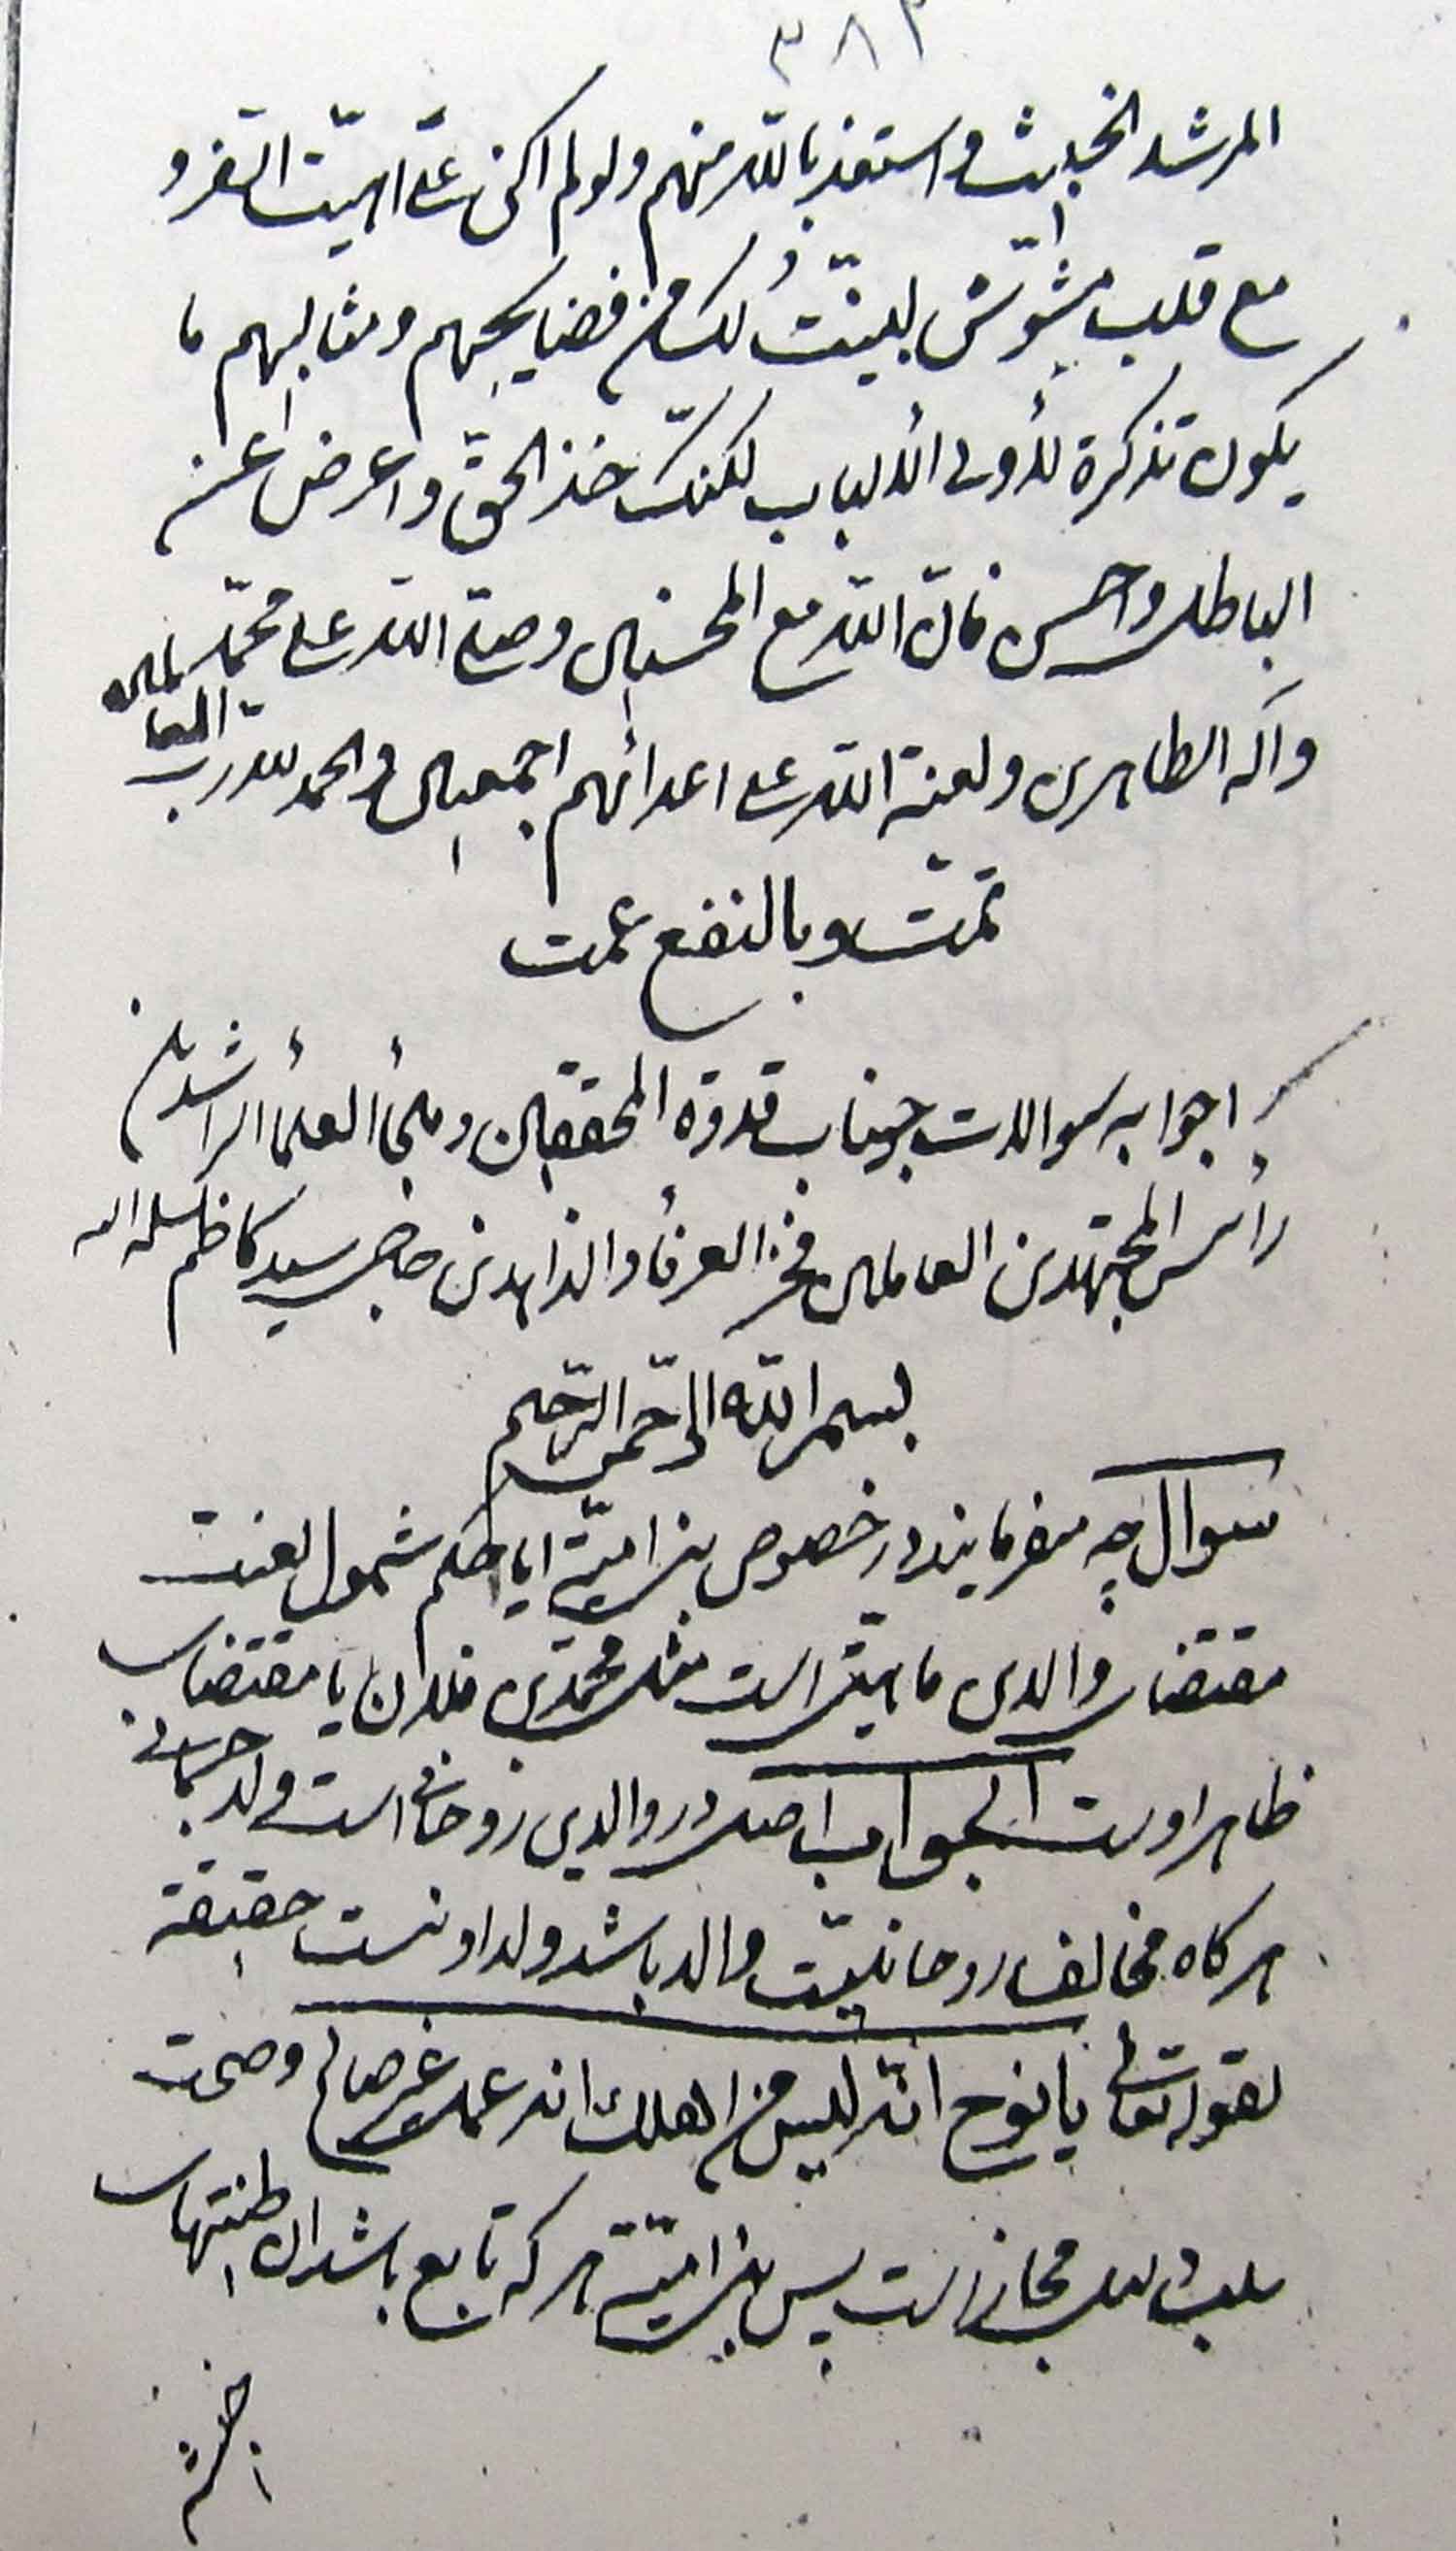 ٣٨٢
المرشد الخبيث و استعذ بالله منهم ولو لم اكن على اهبّة السفر و
مع قلب مشوّش لبيّنت لك من فضايحهم و مثالبهم ما
يكون تذكرة لأولى الألباب لكنّك خذ الحق و اعرض عن
الباطل و احسن فان الله مع المحسنين و صلى الله على محمّد
و آله الطاهرين و لعنة الله على اعدائهم اجمعين و الحمد لله رب العالمين
تمّت و بالنفع عمت
اجوابه سوالات جناب قدوة المحققين و ملجأ العلمأ الراشدين
رأس المجتهدين العاملين فخر العرفأ و الزاهدين حاجى سيد كاظم سلمه الله
بسم الله الرّحمن الرّحيم
سوال چه ميفرمايند در خصوص بنى اميّة ايا حكم شمول لعنت
مقتضاى والدين ماهيّتى است مثل محمّد بن فلان يا مقتضاى
ظاهر اوست الجواب اصل در والدين روحانى است و لد جسمانى
هر كاه مخالف روحانيّت والد باشد ولد او نيست حقيقة
لقوله تعالى يا نوح انّه ليس من اهلك انه عمل غير صالح و صحت
سلب دليل مجاز است پس بنى اميّة هر كه تابع باشد ان طينتهاى